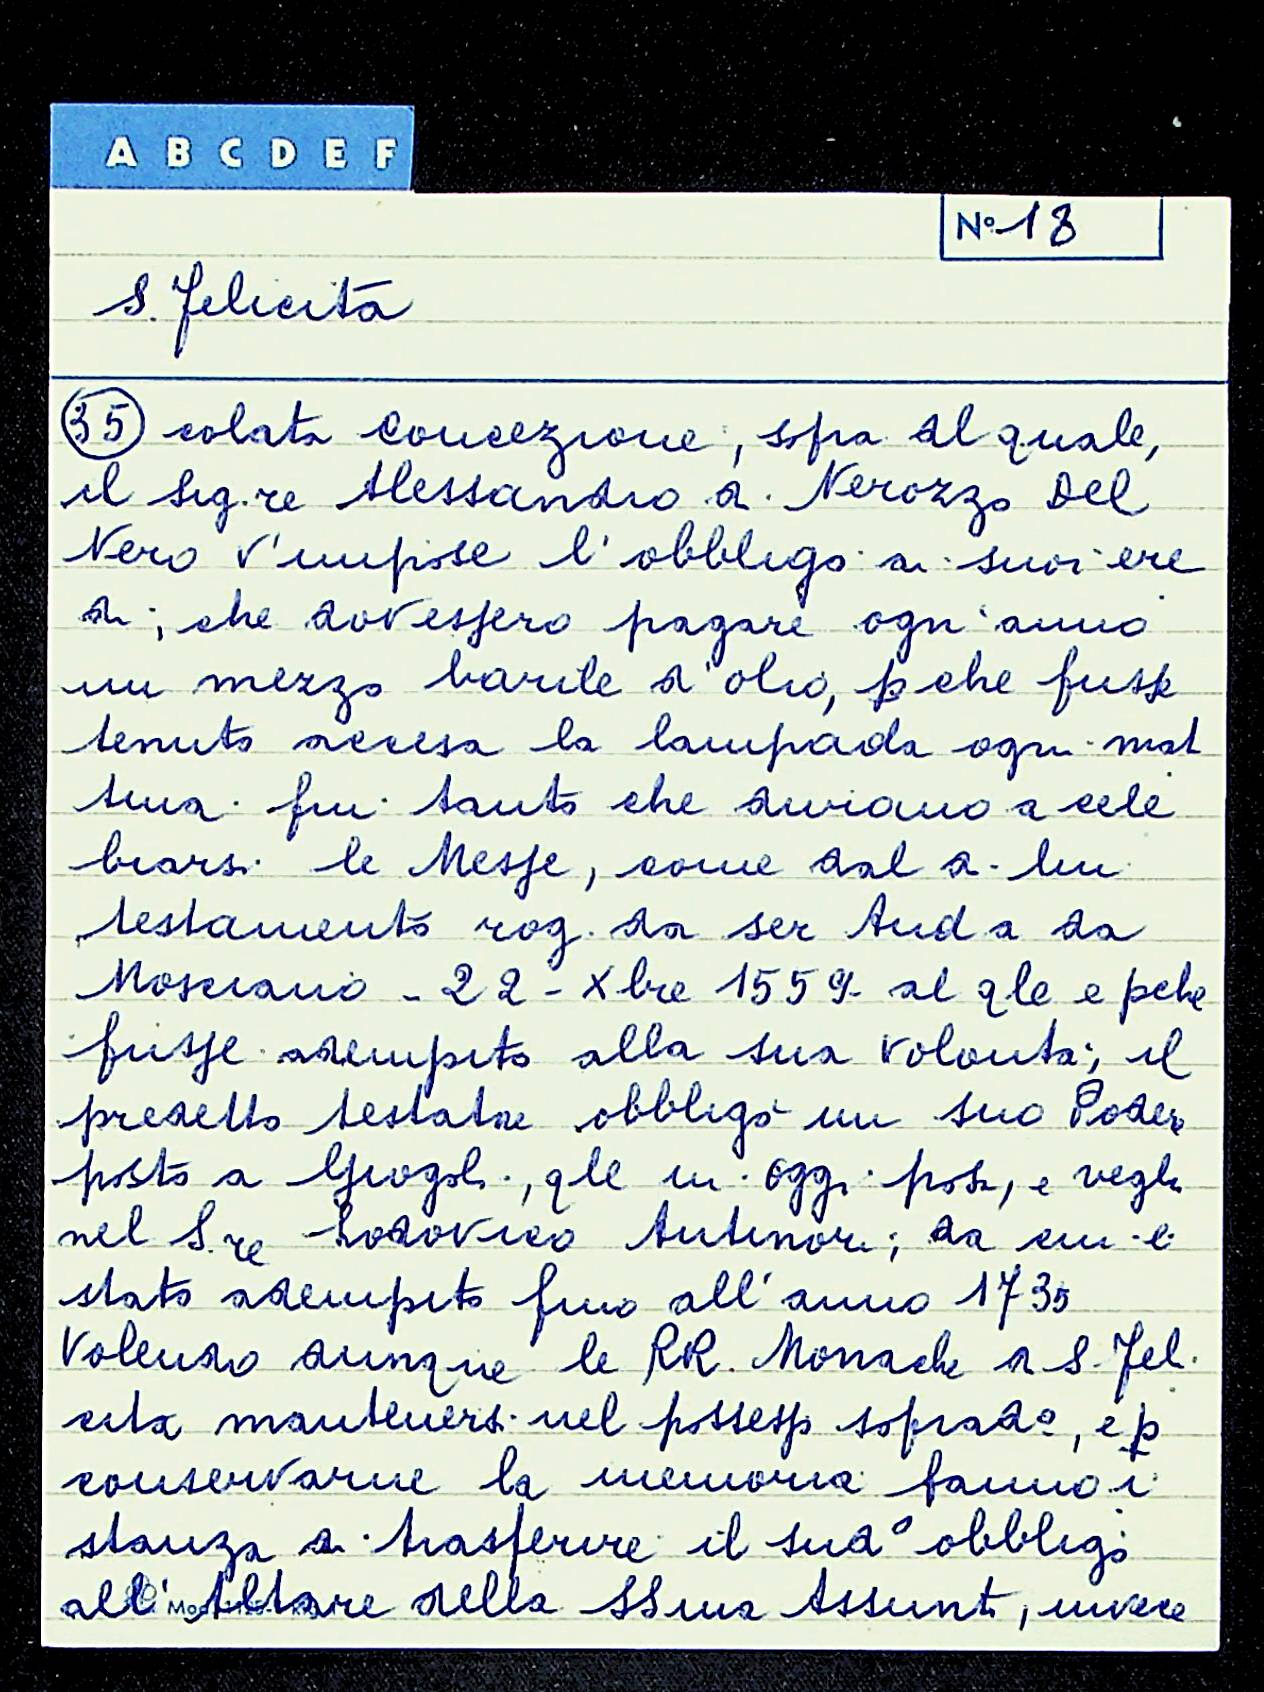 A B C D E F
Nº 18
S. Felicità
35 colata Concezione, sopra al quale,
il Sig.re Alessandro di Nerozzo Del
Nero v'impose l'obbligo ai suoi ere
di; che dovessero pagare ogn'anno
un mezzo barile d'olio, pche fusse
tenuto accesa la lampada ogni mat
tina fin tanto che duviano a cele
brarsi le Messe, come dal di lui
testamento rog. da ser And a da
Mosciano - 22 - Xbre 1559 - al qle e pche
fusse adempito alla sua volontà; il
predetto testatre obbligò un suo Podere
posto a Giogoli, qle in oggi posto, e veglia
nel S.re Lodovico Antinori; da cui è
stato adempito fino all'anno 1735
Volendo dunque le RR. Monache di S. Fel.
cita mantenersi nel possesso sopradº, e p
conservarne la memoria fanno i
stanza di trasferire il sudº obbligo
all'Altare della SSma Assunta, invece